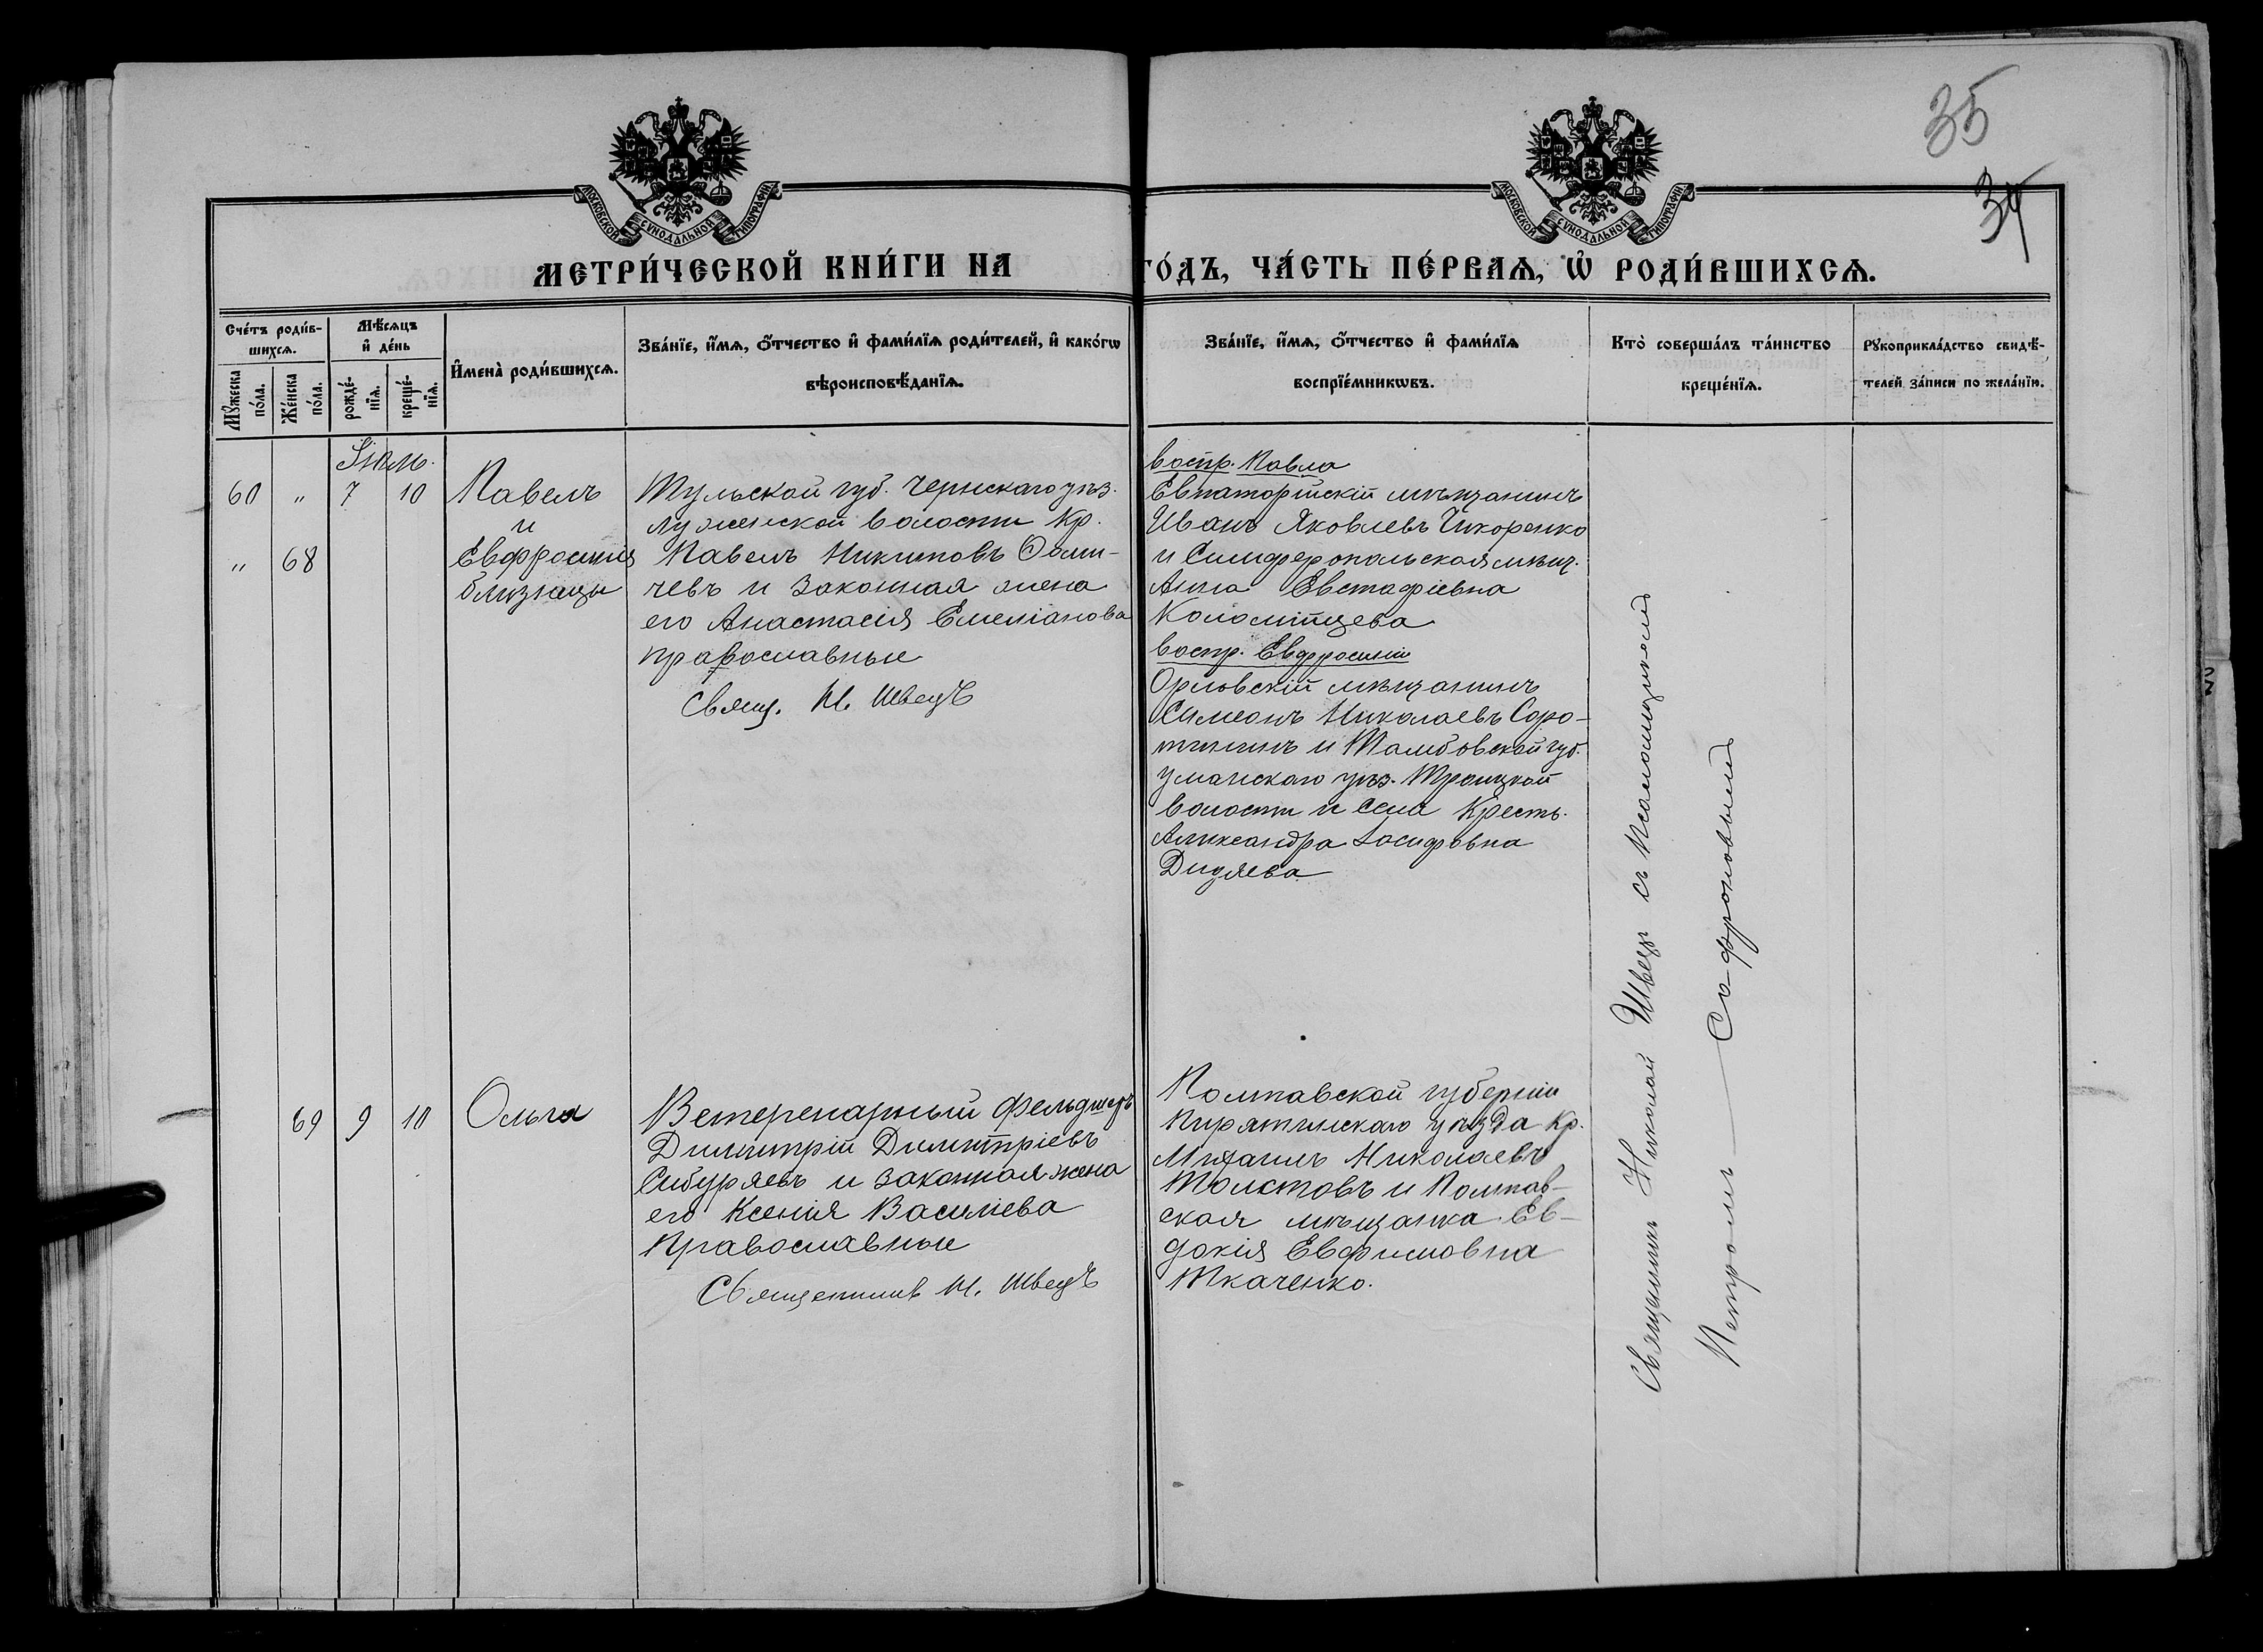 35
34
МОСКОВСКОЙ СѴНОДАЛЬНОЙ ТИПОГРАФІИ
МОСКОВСКОЙ СѴНОДАЛЬНОЙ ТИПОГРАФІИ
МЕТРИ́ЧЕСКОЙ КНИ́ГИ НА
ГО́ДЪ, ЧА́СТЬ ПЕ́РВАѦ, Ѡ҆ РОДИ́ВШИХСѦ.
Сче́тъ роди́в-
шихсѧ.
Мꙋ́жеска по́ла.
Же́нска по́ла.
Мѣ́сѧцъ
и҆ де́нь
рожде́-
нїѧ.
креще́-
нїѧ.
И҆мена̀ роди́вшихсѧ.
Зва́нїе, и҆́мѧ, ѻ҆́тчество и҆ фами́лїѧ роди́телей, и҆ како́гѡ
вѣроисповѣ́данїѧ.
Зва́нїе, и҆́мѧ, ѻ҆́тчество и҆ фами́лїѧ
воспрїе́мникѡвъ.
Кто̀ соверша́лъ та́инство
креще́нїѧ.
Рꙋкоприкла́дство свидѣ́-
телей за́писи по жела́нїю.
Іюль.
60 " 7 10
" 68
Павелъ
и
Евфросинія
близнецы
Тульской губ. Чернскаго уѣз.
волости Кр.
Павелъ Никитовъ
чевъ и законная жена
его Анастасія Емеліанова
православные
Свящ. Н. Швецъ
воспр. Павла
Евпаторійскій мѣщанинъ
Иванъ Яковлевъ
и Симферопольская мѣщ.
Анна Евстафіевна
Коломійцева
воспр. Евфросиніи
Орловскій мѣщанинъ
Симеонъ Николаевъ Соро-
тининъ и Тамбовской губ.
Усманскаго уѣз. Троицкой
волости и села Кресть.
Александра Іосифовна
69 9 10
Ольга
Ветеренарный Фельдшеръ
Димитрій Димитріевъ
Сибуряевъ и законная жена
его Ксенія Василіева
Православные
Священникъ Н. Швецъ
Полтавской губерніи
Пирятинскаго уѣзда Кр.
Михаилъ Николаевъ
Толстовъ и Полтав-
ская мѣщанка Ев-
докія Евфимовна
Ткаченко.
Священникъ Николай Швецъ съ Псаломщикомъ
Петромъ — Софроновымъ